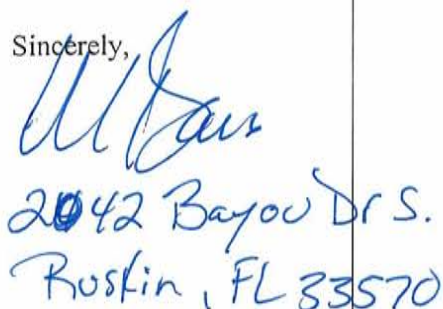 Sincerely,
2042 Bayou Dr S.
Ruskin, FL 33570